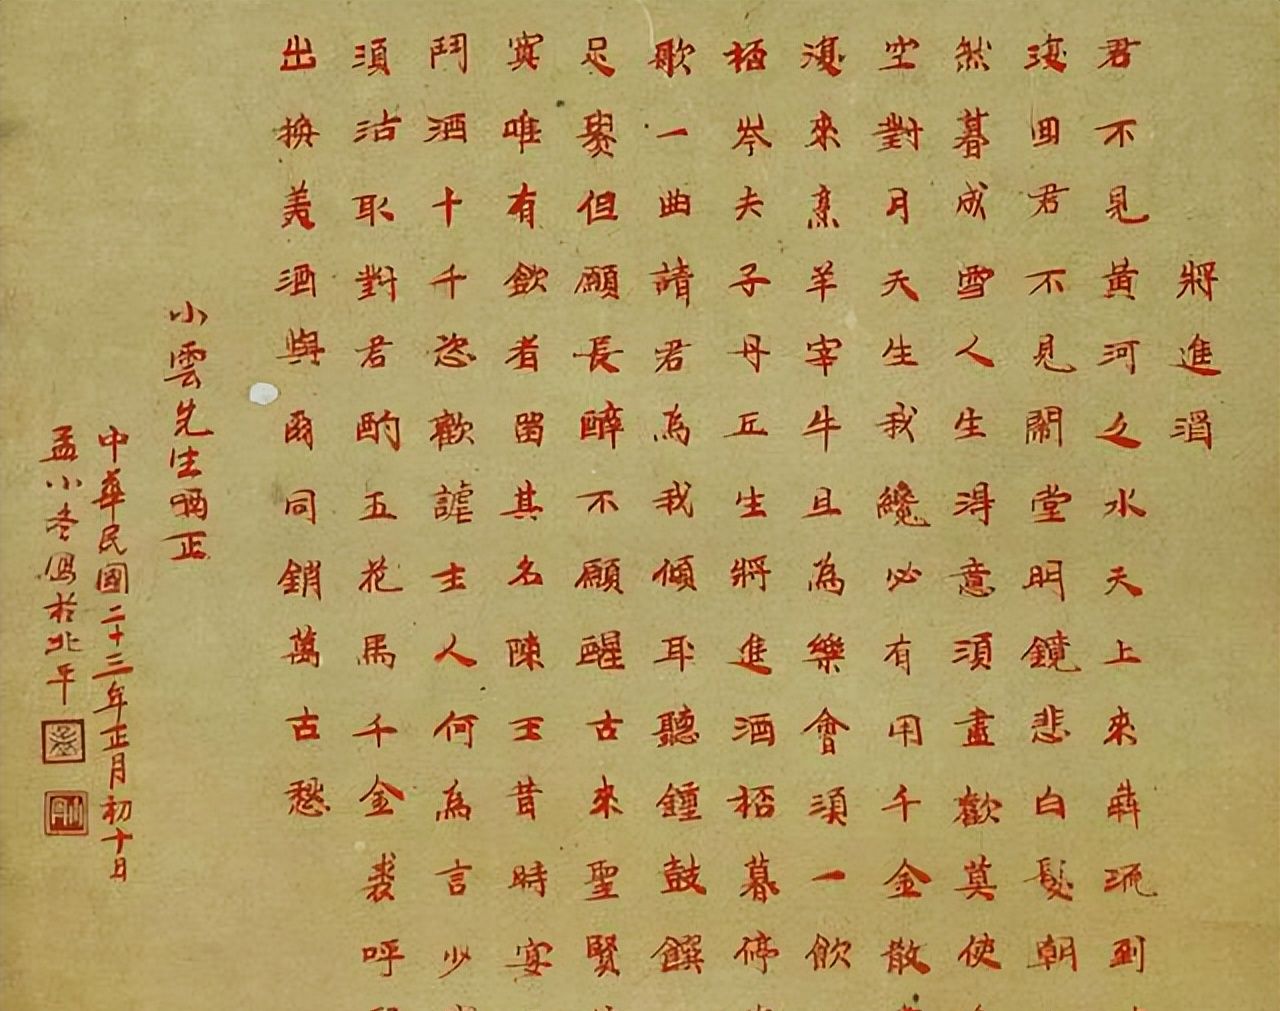 將進酒
君不見黃河之水天上來犇流到
復回君不見高堂明鏡悲白髮朝
絲暮成雪人生得意須盡歡莫使
空對月天生我纔必有用千金散
復來烹羊宰牛且為樂會須一飲
桮岑夫子丹丘生將進酒桮暮停
歌一曲請君為我傾耳聽鐘鼓饌
足貴但願長醉不願醒古來聖賢
寞唯有飲者留其名陳王昔時宴
鬥酒十千恣歡謔主人何為言少
須沽取對君酌五花馬千金裘呼
出換美酒與爾同銷萬古愁
小雲先生哂正
中華民國二十三年正月初十日
孟小冬寫於北平